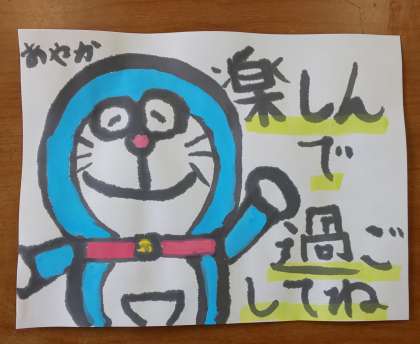 あやか
楽しん
で
過ご
してね